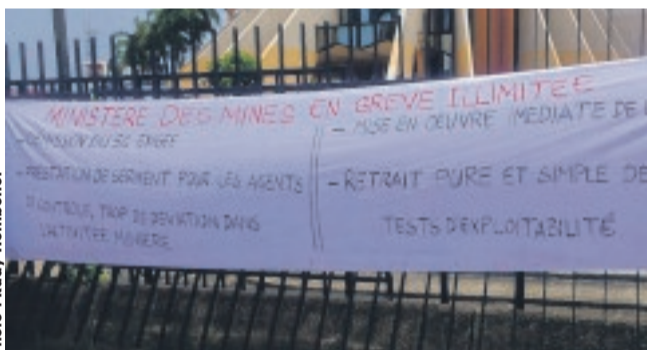 MINISTERE DES MINES EN GREVE ILLIMITEE
- DEMISSION DU SG EXIGEE
- PRESTATION DE SERMENT POUR LES AGENTS
DE CONTROLE, TROP DE DEVIATION DANS
L'ACTIVITEE MINIERE
- MISE EN ŒUVRE IMEDIATE DE
- RETRAIT PURE ET SIMPLE DE
TESTS D'EXPLOITABILITÉ